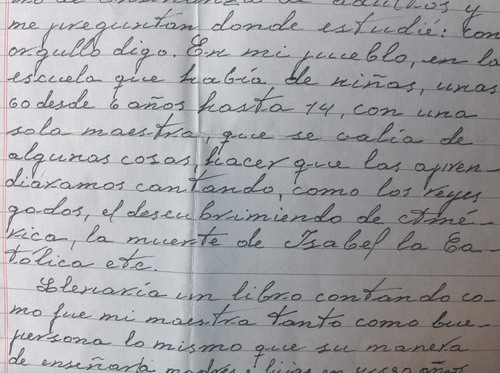 mo de enseñanza de adultos y
me preguntan donde estudié: con
orgullo digo. En mi pueblo, en la
escuela que había de niñas, unas
60 desde 6 años hasta 14, con una
sola maestra, que se valía de
algunas cosas, hacer que las apren-
diáramos cantando, como los reyes
godos, el descubrimiendo de Amé-
rica, la muerte de Isabel la Ca-
tólica etc.
Llenaría un libro contando co-
mo fue mi maestra tanto como bue-
persona lo mismo que su manera
de enseñar a madres e hijas en